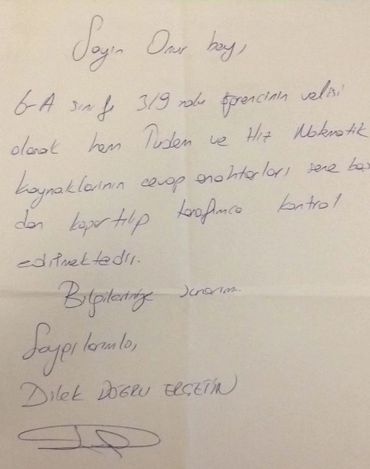 Sayın Onur bey,
6-A sınıfı 319 nolu öğrencinin velisi
olarak hem Tudem ve Hız Matematik
kaynaklarının cevap anahtarları sene baş
dan kopartılıp tarafımca kontrol
edilmektedir.
Bilgilerinize sunarım.
Saygılarımla,
Dilek DOĞRU ERÇETİN